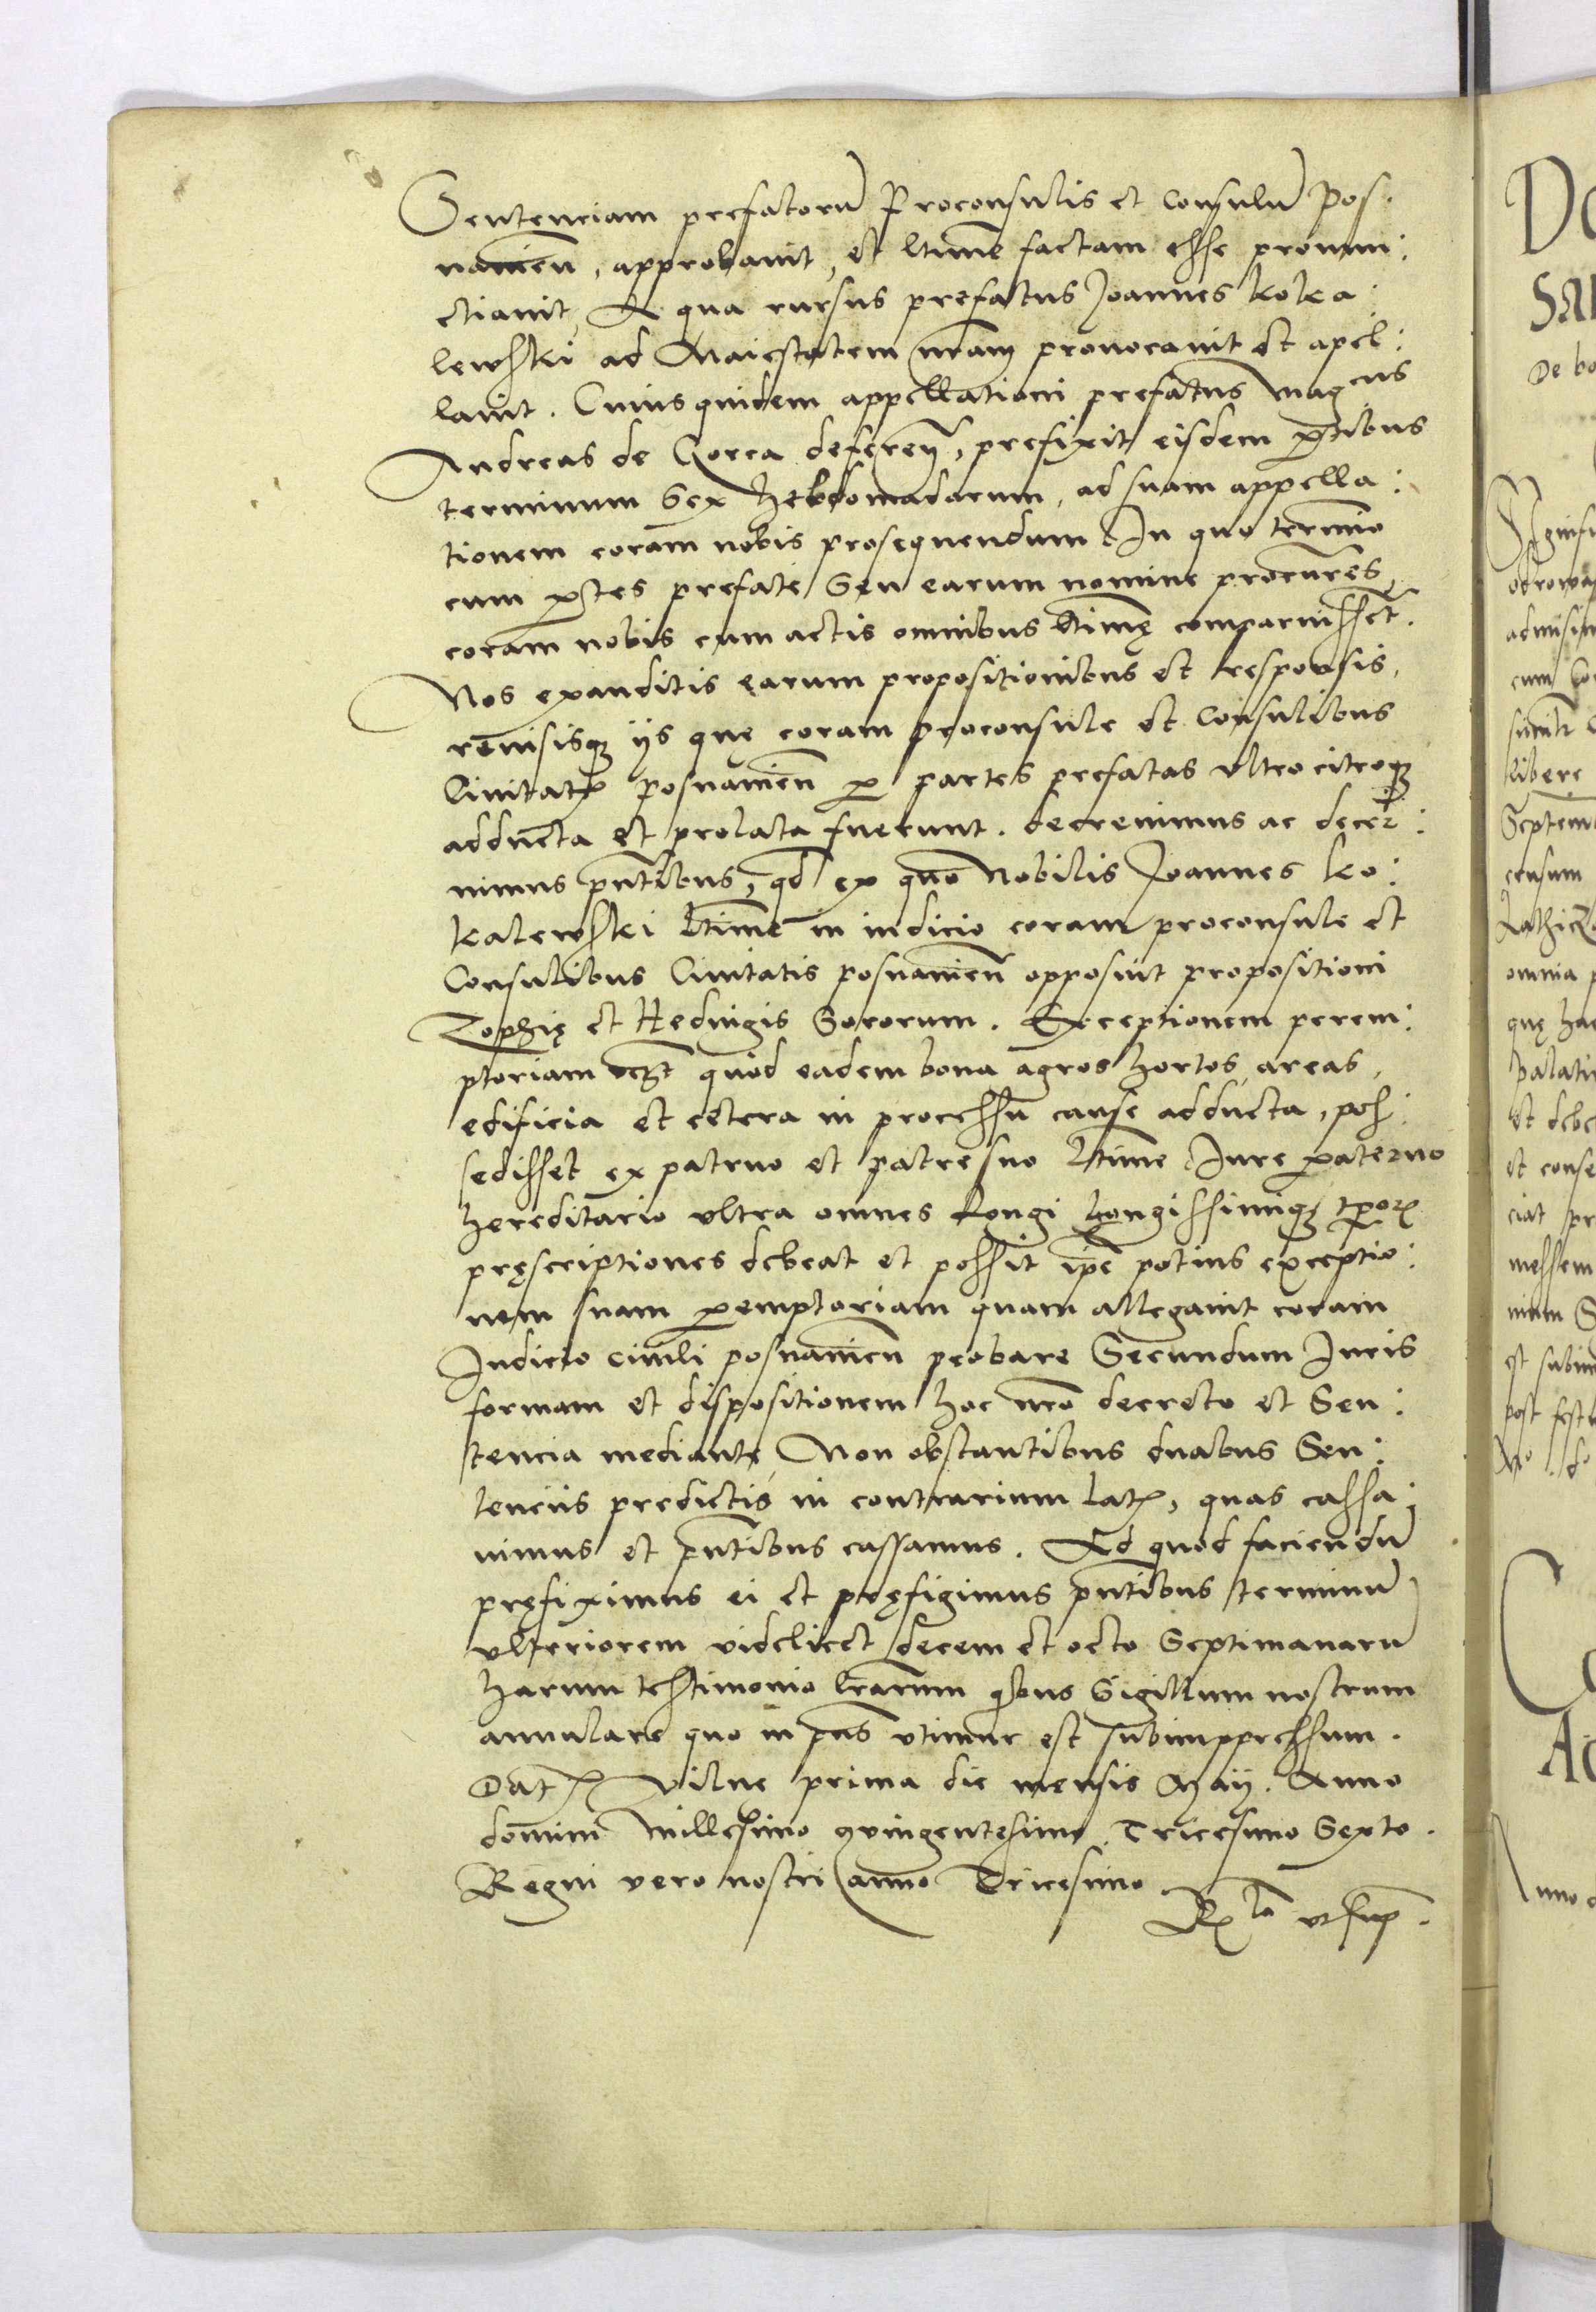 Sentenciam prefatorũ Proconsulis et Consulũ Pos:
namen̄, approbauit, et ltime factam esse pronun:
ctiauit, A qua rursus prefatus Joannes koka
lewski ad Maiestatem nr̄am prouocauit et apel:
lauit. Cuius quidem appellationi prefatus magcus
Andreas de Gorca deferen̄, prefixit eisdem ꝑtibus
terminum Sex hebdomadarum, ad suam appella:
tionem coram nobis prosequendum. In quo termīo
cum ꝑtes prefate Seu earum nomine procur̄es,
coram nobis cum actis omnibus ltimę comparuissēt.
Nos exauditis earum propositionibus et responsis,
reuisisqꝫ ijs quę coram proconsule et Consulibus
Ciuitatꝭ posnamen̄ ꝑ partes prefatas vltro citroqꝫ
adducta et prolata fuerunt. decreuimus ac decer:
nimus pn̄tibus, qd ex quo Nobilis Joannes ko:
kalewski ltime in iudicio coram proconsule et
Consulibus Ciuitatis posnamien̄ opposuit propositioni
Zophię et Heduigis Sororum. Exceptionem perem:
ptoriam vcꝫt quod eadem bona agros hortos areas,
edificia et cetera in processu cause adducta, pos:
sedisset ex patruo et patre suo ltime Iure paterno
hereditario vltra omnes longi longissimiqꝫ tꝑorꝭ
pręscriptiones debeat et possit ip̄e potius exceptio:
nem suam ꝑemptoriam quam allegauit coram
Iudicio ciuili posnamien̄ probare Secundum Iuris
formam et dispositionem hoc nr̄o decreto et Sen:
tencia mediante, Non obstantibus duabus Sen:
tenciis predictis in contrarium latꝭ, quas cassa:
uimus et pn̄tibus cassamus. Ad quod faciendũ
pręfiximus ei et pręfigimus pn̄tibus terminũ
vlteriorem videlicet decem et octo Septimanarũ
harum testimonio lr̄arum qꝫbus Sigillum nostrum
annulare quo in pn̄s vtimur est subimppressum.
Datꝭ Vilne prima die mensis Maij. Anno
domini millesimo quingentęsimo Tricesimo Sexto.
Regni vero nostri anno Tricesimo
Rꝭlo vt supꝭ.